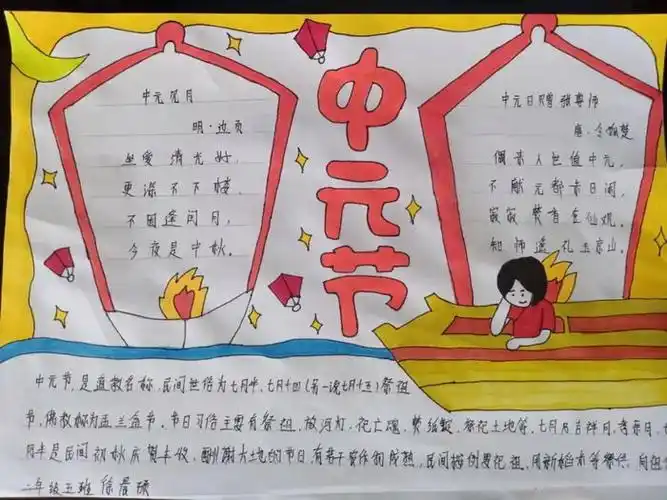 中元见月
明·边贡
坐爱清光好，
更深不下楼。
不因逢闰月，
今夜是中秋。
中元节
中元日赠张尊师
唐·令狐楚
偶来人世值中元，
不献元都永日闲，
寂寂焚香在仙观，
知师遥礼玉京山。
中元节，是道教名称，民间世俗为七月半，七月十四(另一说七月十五)祭祖
节，佛教称为盂兰盆节，节日习俗主要有祭祖，放河灯，祀亡魂，焚纸锭，祭祀土地等，七月乃吉祥月，孝亲月，七
月半是民间初秋庆贺丰收，酬谢大地的节日，有若干农作物成熟，民间按例要祀祖，用新稻米等祭供，向祖
二年级五班 徐